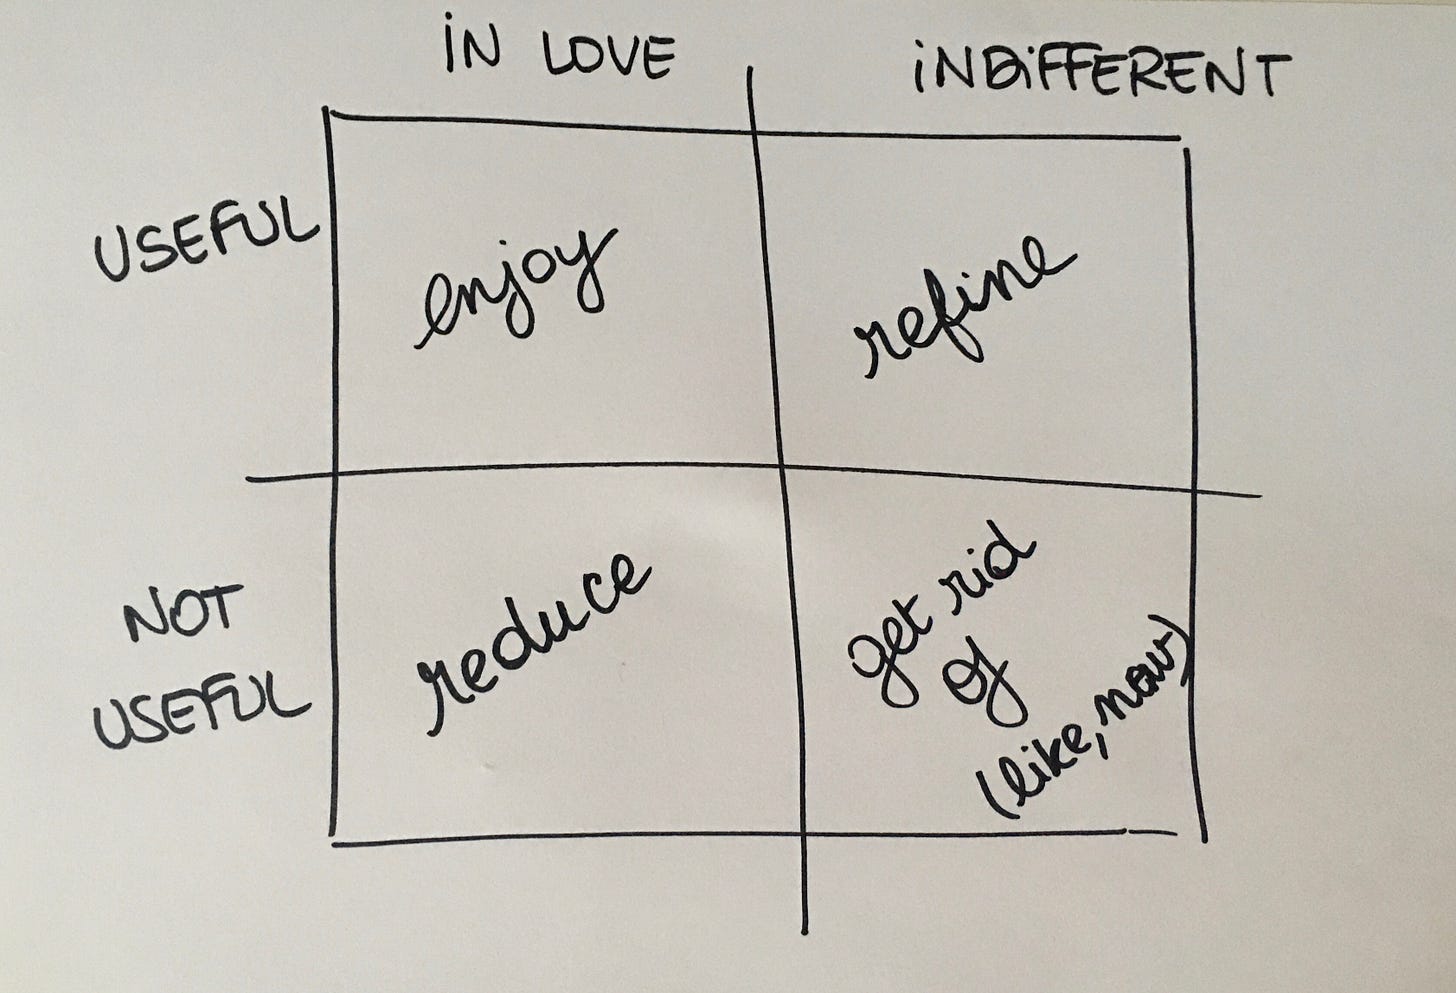 iN LOVE
iNDiFFERENT
USEFUL
enjoy
refine
NOT
USEFUL
reduce
get rid
of
(like, now)